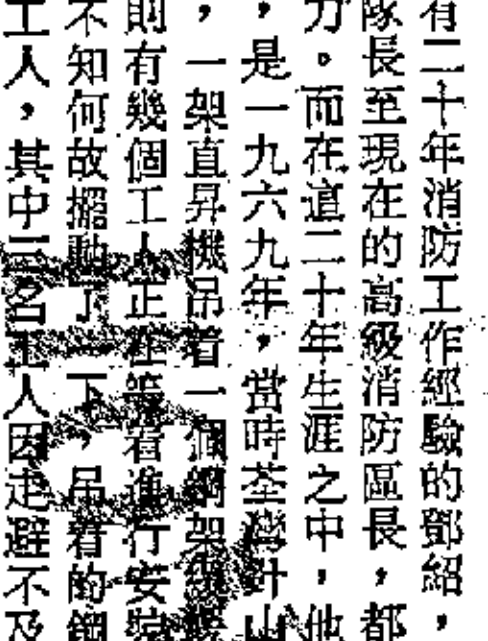 有二十年消防工作經驗的鄧紹，
隊長至現在的高級消防區長，都
力。而在這二十年生涯之中，他
，是一九六九年，當時荃灣叶山
，一架直昇機吊着一個鋼架
則有幾個工人正在等着進行安裝
不知何故擺動了一下，吊着的鋼
工人，其中三名工人因走避不及